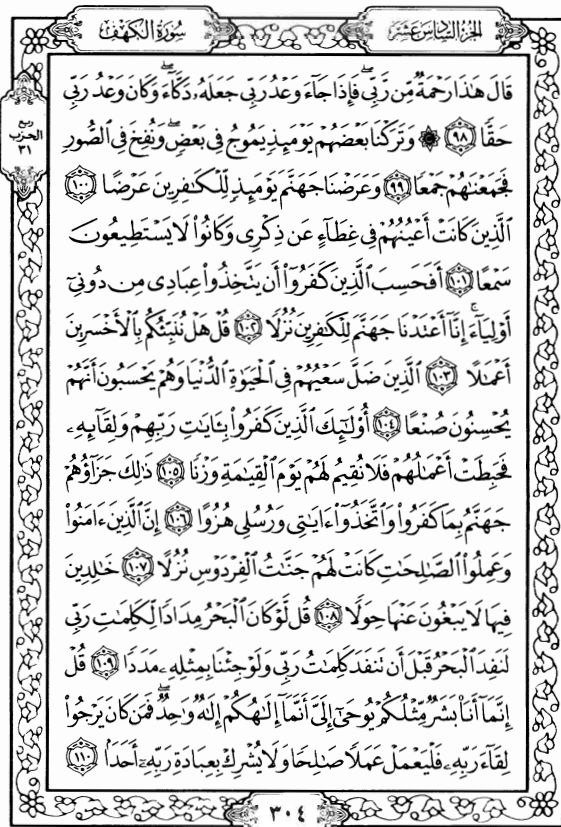 سُورَةُ الكَهْفِ
الجُزْءُ السَّادِسَ عَشَرَ
ربع
الحزب
٣١
قَالَ هَٰذَا رَحْمَةٌ مِّن رَّبِّي ۖ فَإِذَا جَآءَ وَعْدُ رَبِّي جَعَلَهُۥ دَكَّآءَ ۖ وَكَانَ وَعْدُ رَبِّي
حَقًّا ٩٨ ۞ وَتَرَكْنَا بَعْضَهُمْ يَوْمَئِذٍ يَمُوجُ فِي بَعْضٍ ۖ وَنُفِخَ فِي ٱلصُّورِ
فَجَمَعْنَٰهُمْ جَمْعًا ٩٩ وَعَرَضْنَا جَهَنَّمَ يَوْمَئِذٍ لِّلْكَٰفِرِينَ عَرْضًا ١٠٠
ٱلَّذِينَ كَانَتْ أَعْيُنُهُمْ فِي غِطَآءٍ عَن ذِكْرِي وَكَانُوا۟ لَا يَسْتَطِيعُونَ
سَمْعًا ١٠١ أَفَحَسِبَ ٱلَّذِينَ كَفَرُوٓا۟ أَن يَتَّخِذُوا۟ عِبَادِي مِن دُونِيٓ
أَوْلِيَآءَ ۚ إِنَّآ أَعْتَدْنَا جَهَنَّمَ لِلْكَٰفِرِينَ نُزُلًا ١٠٢ قُلْ هَلْ نُنَبِّئُكُم بِٱلْأَخْسَرِينَ
أَعْمَٰلًا ١٠٣ ٱلَّذِينَ ضَلَّ سَعْيُهُمْ فِي ٱلْحَيَوٰةِ ٱلدُّنْيَا وَهُمْ يَحْسَبُونَ أَنَّهُمْ
يُحْسِنُونَ صُنْعًا ١٠٤ أُو۟لَٰٓئِكَ ٱلَّذِينَ كَفَرُوا۟ بِـَٔايَٰتِ رَبِّهِمْ وَلِقَآئِهِۦ
فَحَبِطَتْ أَعْمَٰلُهُمْ فَلَا نُقِيمُ لَهُمْ يَوْمَ ٱلْقِيَٰمَةِ وَزْنًا ١٠٥ ذَٰلِكَ جَزَآؤُهُمْ
جَهَنَّمُ بِمَا كَفَرُوا۟ وَٱتَّخَذُوٓا۟ ءَايَٰتِي وَرُسُلِي هُزُوًا ١٠٦ إِنَّ ٱلَّذِينَ ءَامَنُوا۟
وَعَمِلُوا۟ ٱلصَّٰلِحَٰتِ كَانَتْ لَهُمْ جَنَّٰتُ ٱلْفِرْدَوْسِ نُزُلًا ١٠٧ خَٰلِدِينَ
فِيهَا لَا يَبْغُونَ عَنْهَا حِوَلًا ١٠٨ قُل لَّوْ كَانَ ٱلْبَحْرُ مِدَادًا لِّكَلِمَٰتِ رَبِّي
لَنَفِدَ ٱلْبَحْرُ قَبْلَ أَن تَنفَدَ كَلِمَٰتُ رَبِّي وَلَوْ جِئْنَا بِمِثْلِهِۦ مَدَدًا ١٠٩ قُلْ
إِنَّمَآ أَنَا۠ بَشَرٌ مِّثْلُكُمْ يُوحَىٰٓ إِلَيَّ أَنَّمَآ إِلَٰهُكُمْ إِلَٰهٌ وَٰحِدٌ ۖ فَمَن كَانَ يَرْجُوا۟
لِقَآءَ رَبِّهِۦ فَلْيَعْمَلْ عَمَلًا صَٰلِحًا وَلَا يُشْرِكْ بِعِبَادَةِ رَبِّهِۦٓ أَحَدًۢا ١١٠
٣٠٤